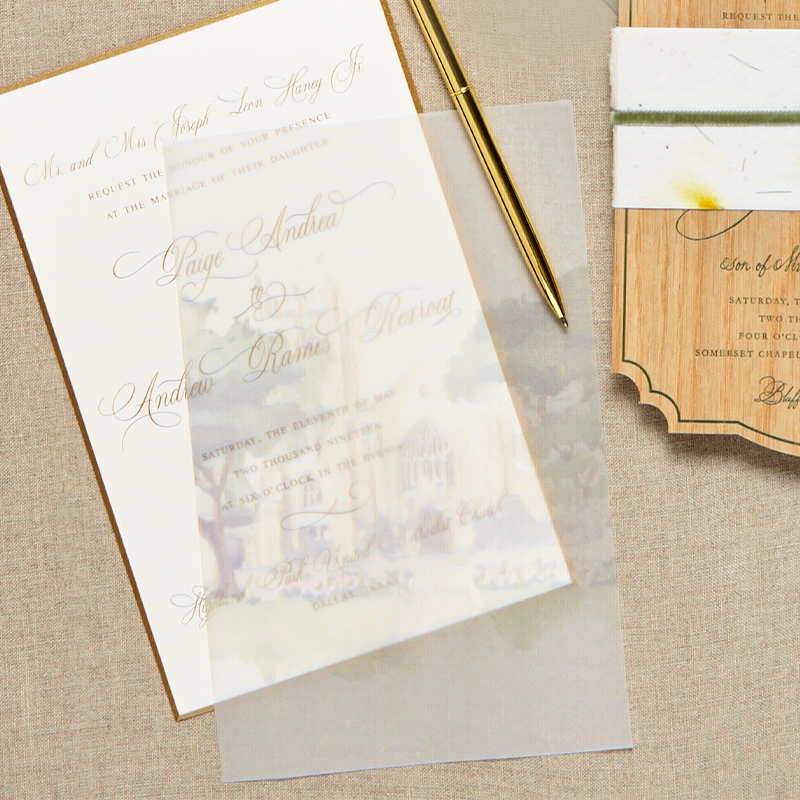 Mr. and Mrs. Joseph Leon Haney Jr
REQUEST THE HONOUR OF YOUR PRESENCE
AT THE MARRIAGE OF THEIR DAUGHTER
Paige Andrea
to
Andrew Ramos Rexroat
SATURDAY, THE ELEVENTH OF MAY
TWO THOUSAND NINETEEN
AT SIX O'CLOCK IN THE EVENING
Highland Park United Methodist Church
DALLAS, TEXAS
REQUEST THE
Son of
SATURDAY,
TWO TH
FOUR O'CLO
SOMERSET CHAPEL
Bluff